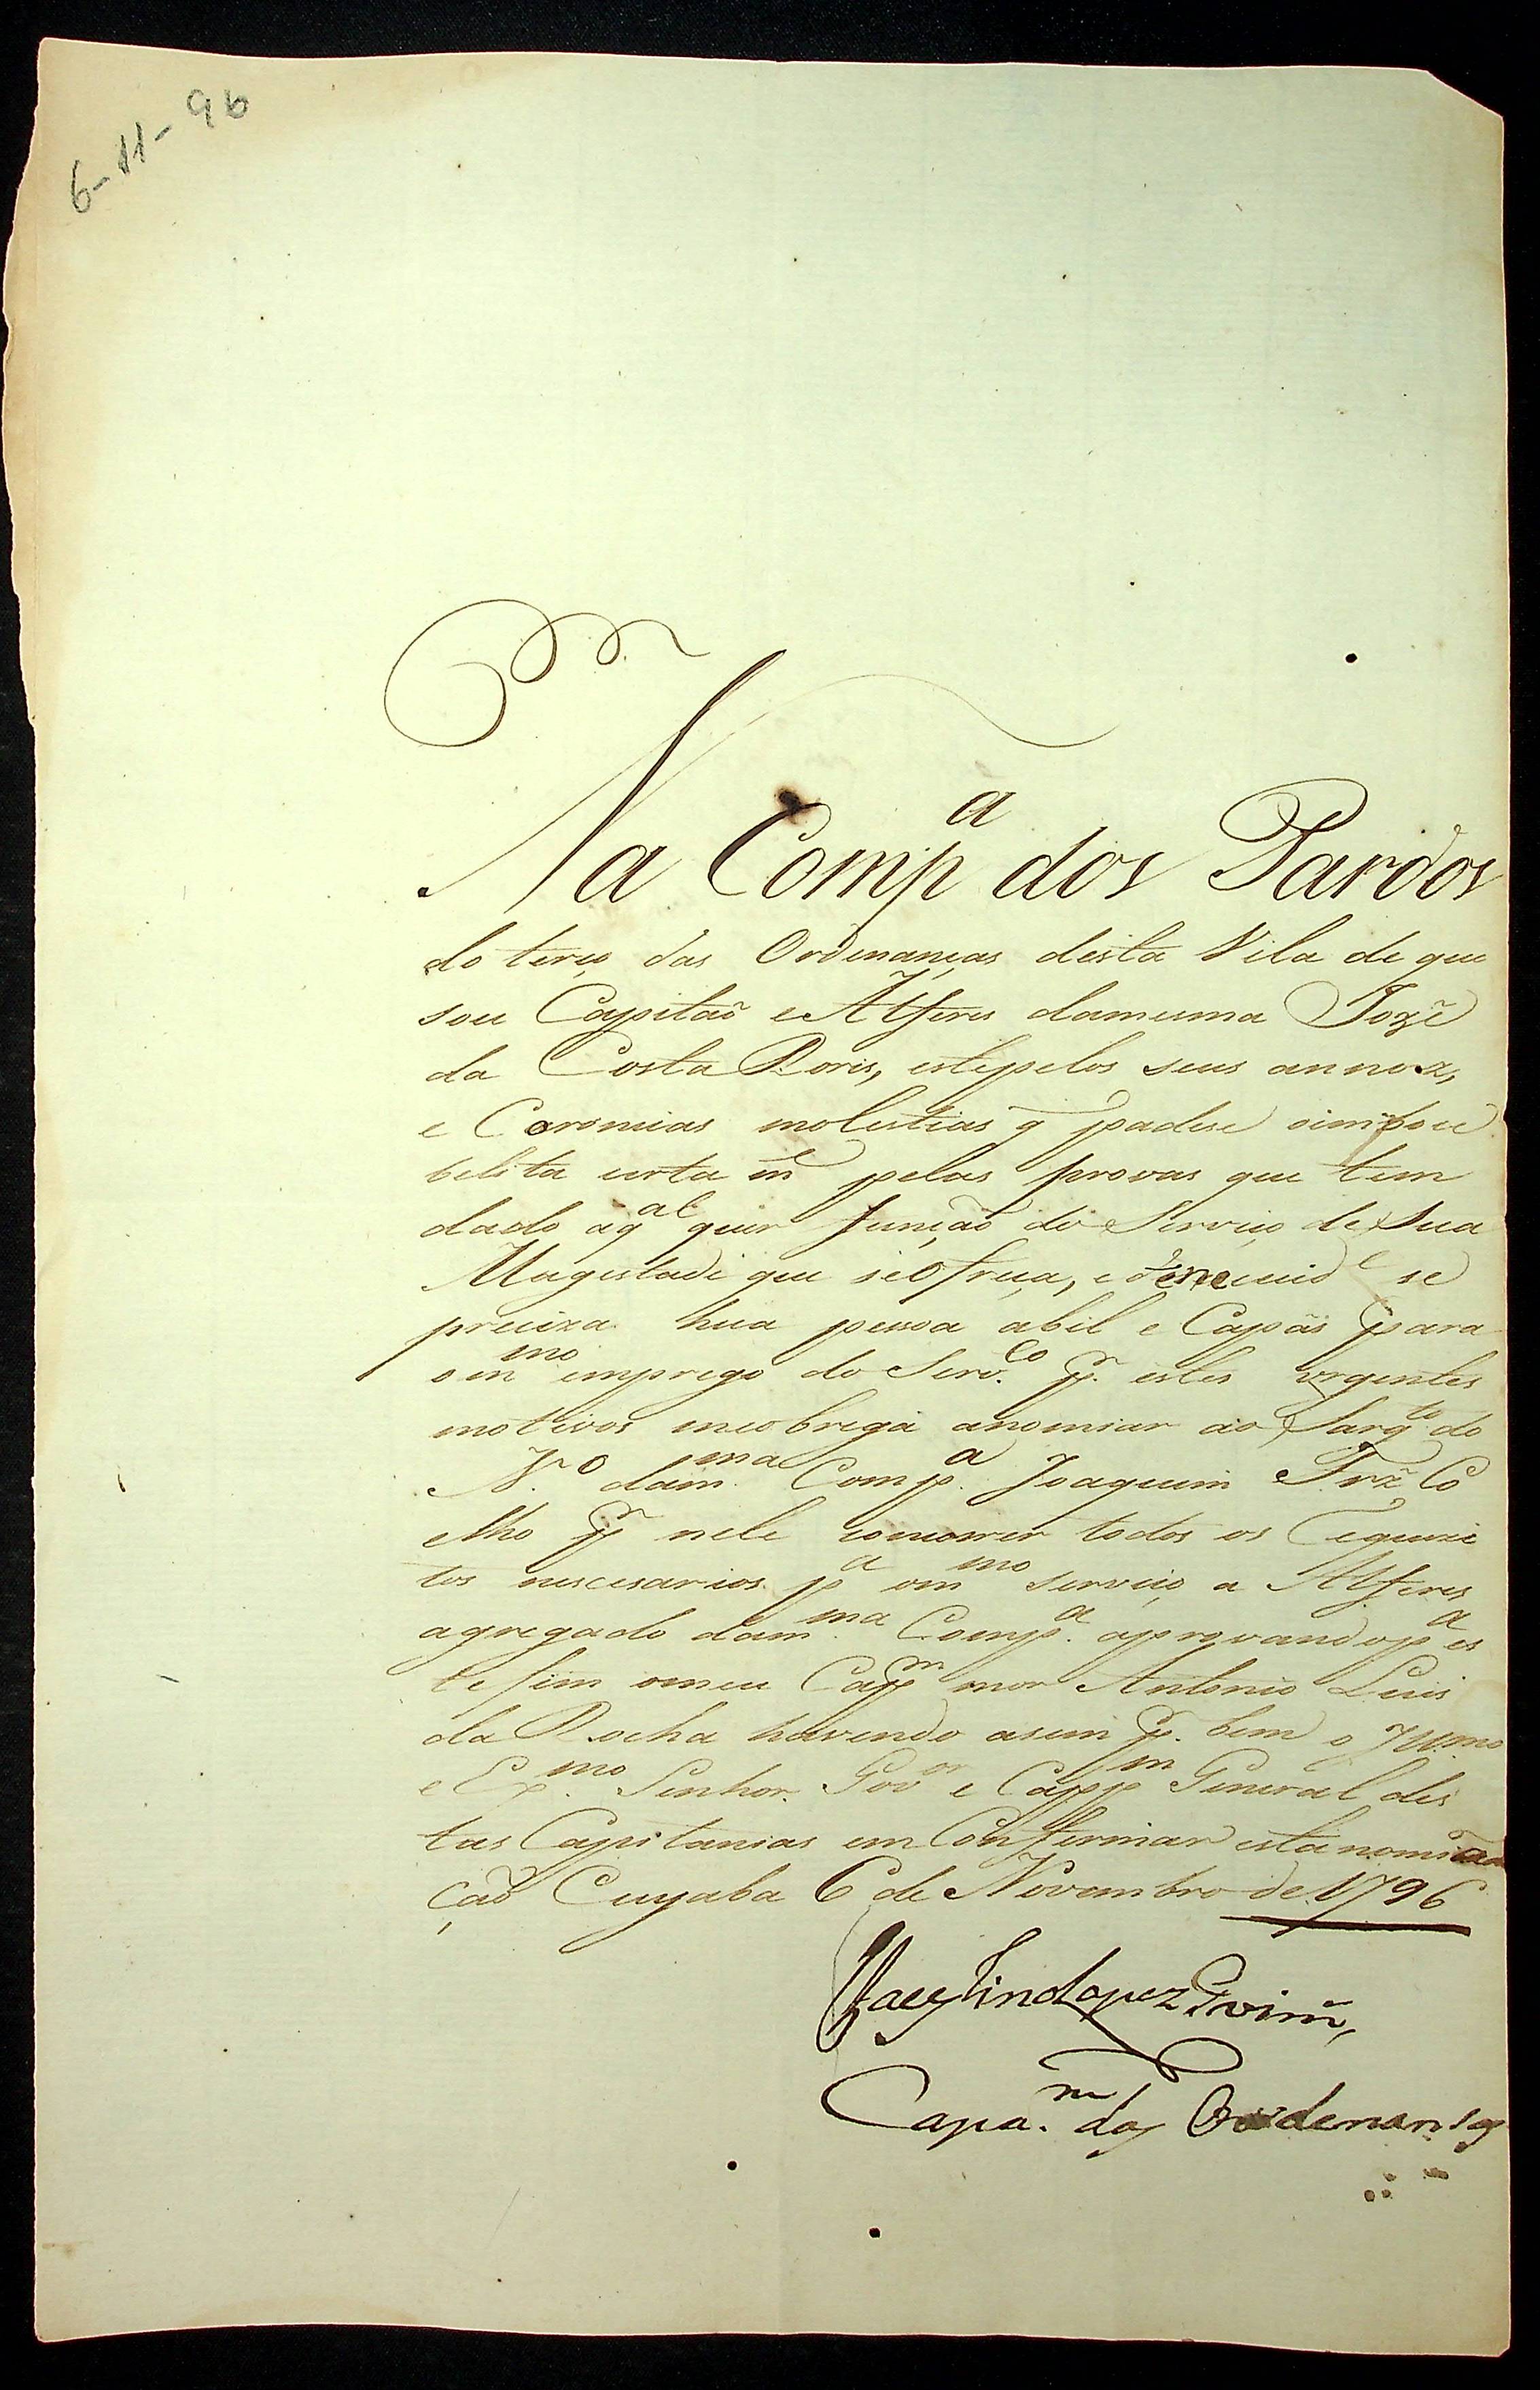 6-11-96
Na Comp.ª dos Pardos
do terço das Ordenanças desta Vila de que
sou Capitaõ e Alferes damesma Jozè
da Costa Roris, estepelos seus annos,
e Coronicas molestias q̃ padese oimposi
belita certa m.e pelas provas que tem
dado aq.al quer funçaõ do Serviço de Sua
Magestade que seofreça, e se
preciza hua pessoa abil e Capàs para
om.mo emprego do Serv.ço p.r estes urgentes
motivos meobrega anomiar ao Sarg.to do
N.º dam.ma Comp.ª Joaquim Frz̃ Co
elho p.r nele concorrer todos os requezi
tos nescesarios p.ª om.mo serviço a Alferes
agregado dam.ma Comp.ª aprovandop.ª es
tefim omeu Cap.m mor Antonio Luis
da Rocha havendo asim p.r bem o Ill.mo
e Ex.mo Senhor Gov.or e Capp.m General des
tas Capitanias em Confermar esta nomia
çaõ Cuyaba 6 de Novembro de 1796
Lopez
Capa.m das Ordenansas